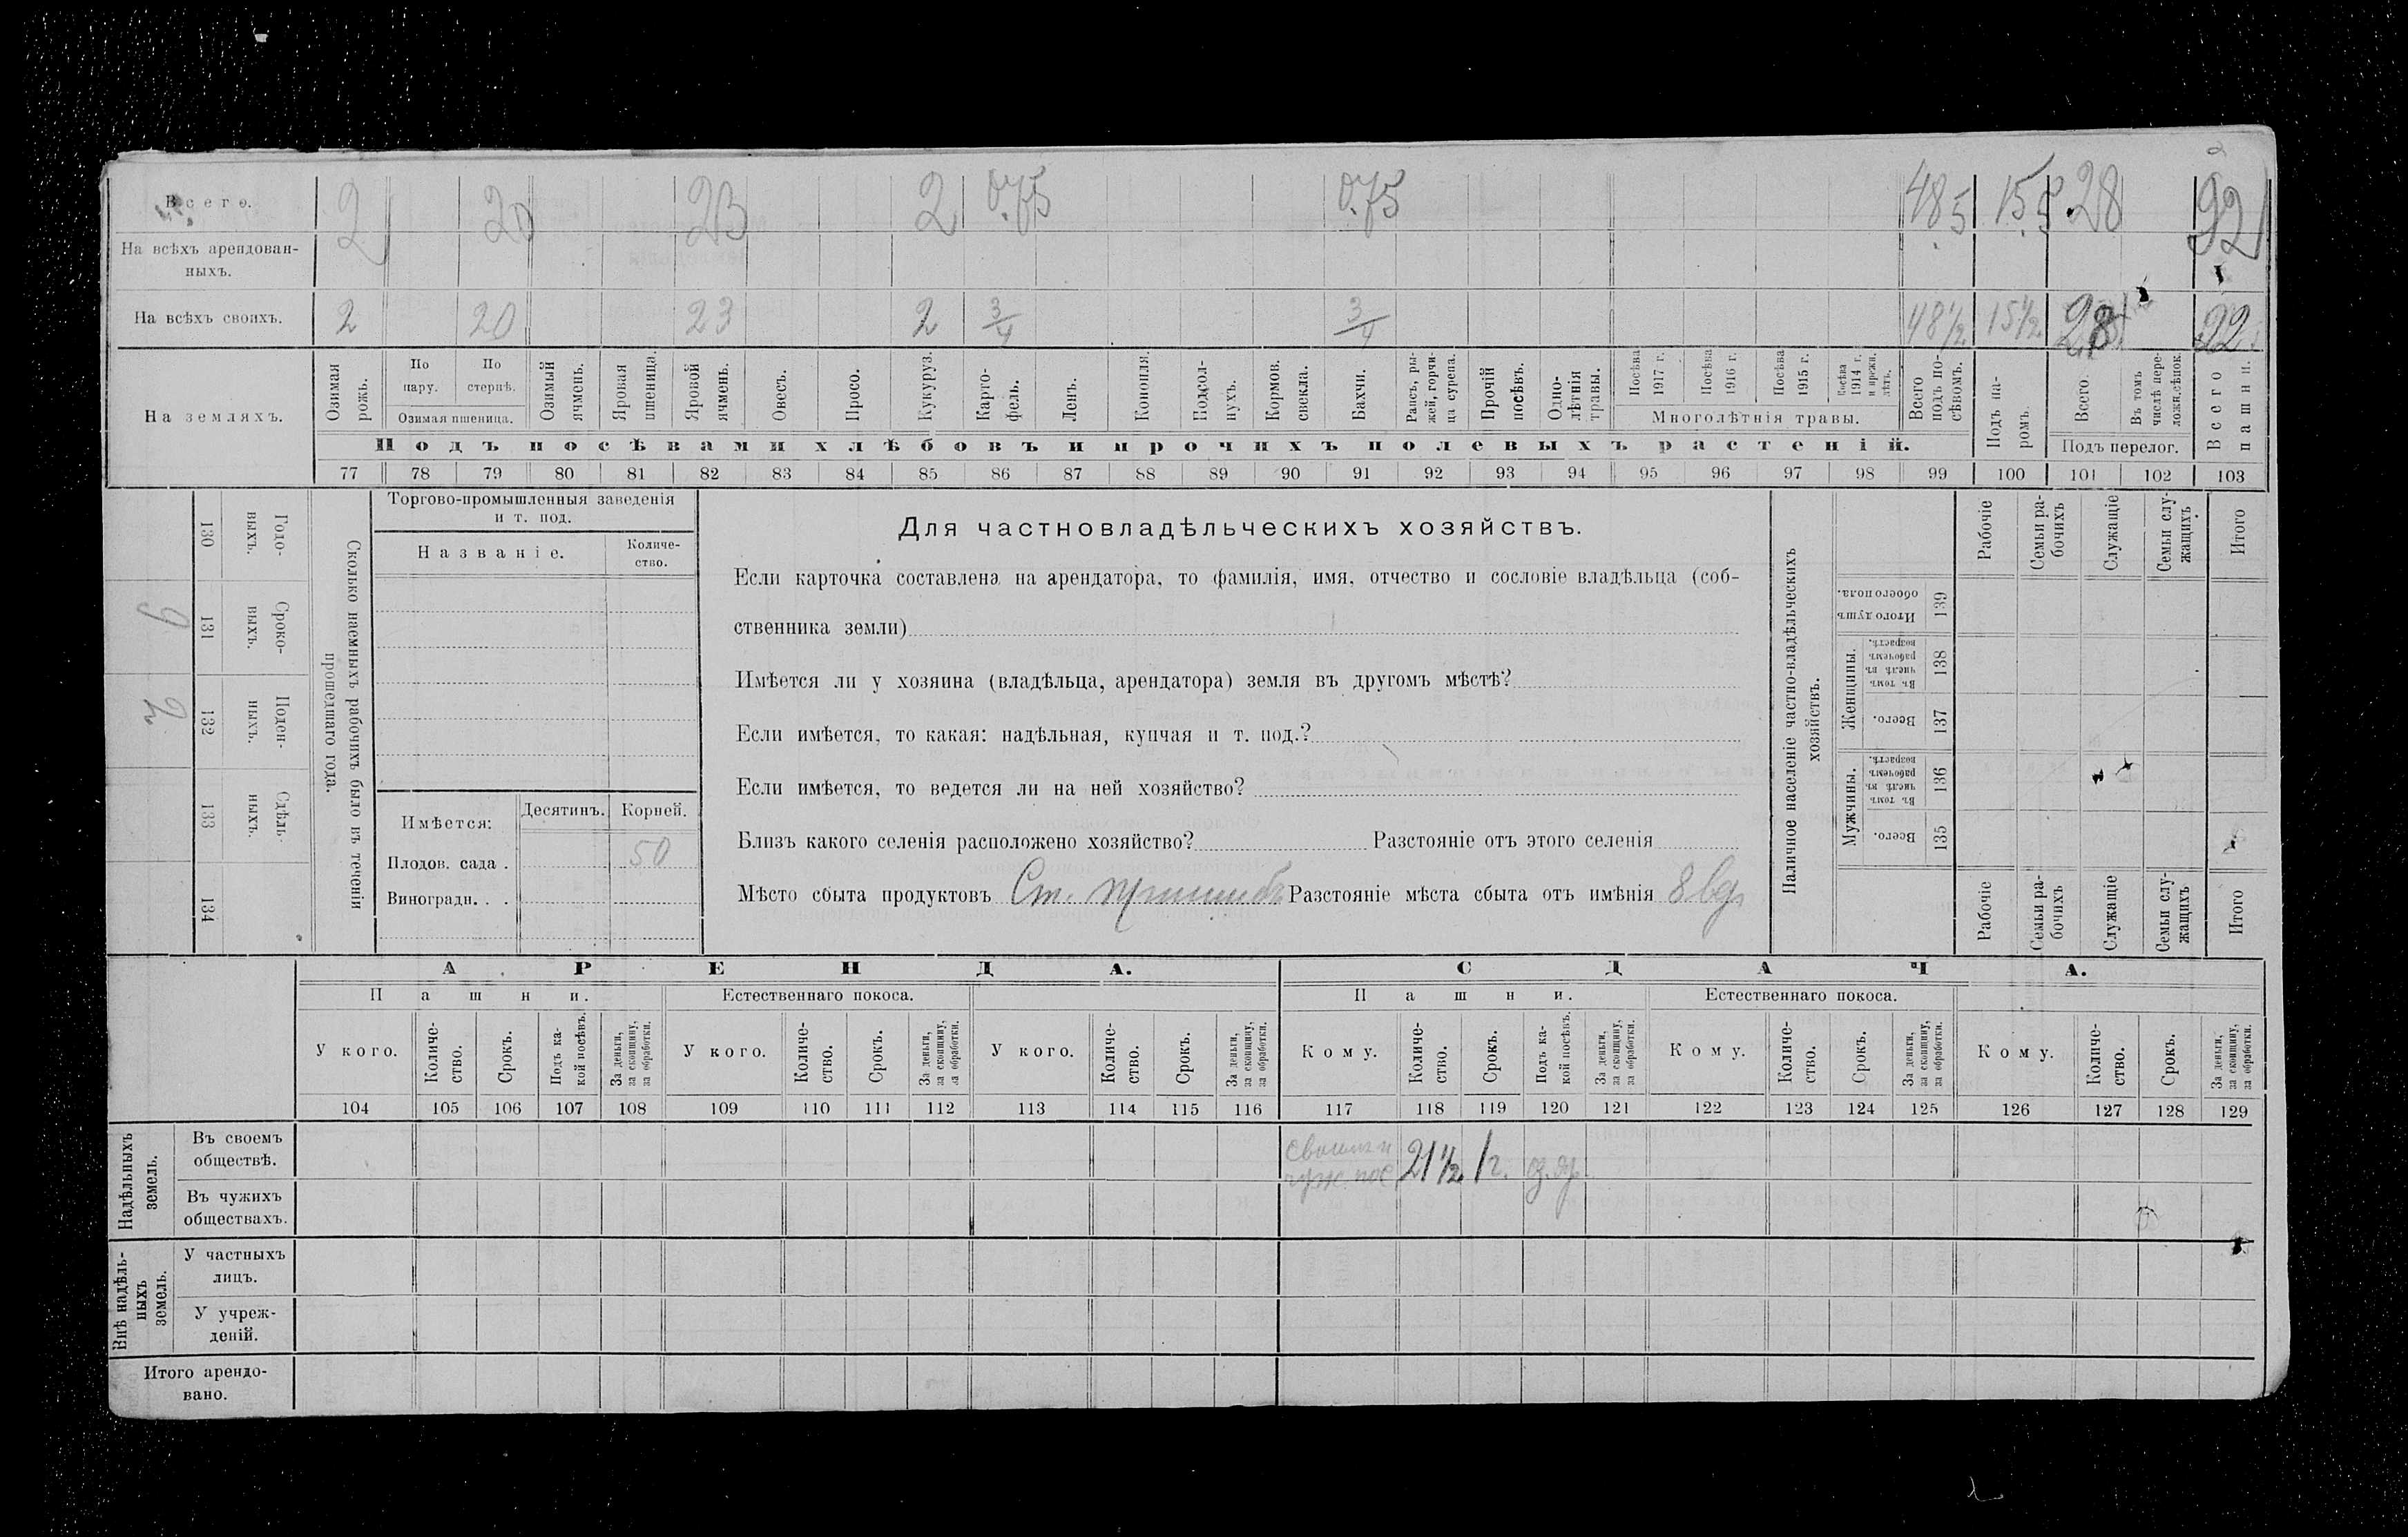 Всего. 2 20 23 2 0.75 0.75 48.5 15.5 28 92
На всѣхъ арендован-
ныхъ.
На всѣхъ своихъ. 2 20 23 2 3/4 3/4 48 1/2 15 1/2 28
На земляхъ.
Озимая рожь.
По пару.
По стернѣ.
Озимая пшеница.
Озимый ячмень.
Яровая пшеница.
Яровой ячмень.
Овесъ.
Просо.
Кукуруз.
Карто-
фель.
Ленъ.
Конопля.
Подсол-
нухъ.
Кормов.
свекла.
Бахчи.
Рапсъ, ры-
жей, горчи-
ца сурепа.
Прочій посѣвъ.
Одно-
лѣтнія
травы.
Посѣва 1917 г.
Посѣва 1916 г.
Посѣва 1915 г.
Посѣва 1914 г. и прежн. лѣтъ.
Многолѣтнія травы.
Всего подъ по-
сѣвомъ.
Подъ па-
ромъ.
Всего.
Въ томъ числѣ пере-
ложн.сѣнок.
Подъ перелог.
Всего пашни.
Подъ посѣвами хлѣбовъ и прочихъ полевыхъ растеній.
77 78 79 80 81 82 83 84 85 86 87 88 89 90 91 92 93 94 95 96 97 98 99 100 101 102 103
Сколько наемныхъ рабочихъ было въ теченіи
прошедшаго года.
Годо-
выхъ.
130
Сроко-
выхъ.
131
9
Поден-
ныхъ.
132
2
Сдѣль-
ныхъ.
133
134
Торгово-промышленныя заведенія
и т. под.
Названіе.
Количе-
ство.
Имѣется:
Десятинъ. Корней.
Плодов. сада . 50
Виноградн. . .
Для частновладѣльческихъ хозяйствъ.
Если карточка составлена на арендатора, то фамилія, имя, отчество и сословіе владѣльца (соб-
ственника земли)
Имѣется ли у хозяина (владѣльца, арендатора) земля въ другомъ мѣстѣ?
Если имѣется, то какая: надѣльная, купчая и т. под.?
Если имѣется, то ведется ли на ней хозяйство?
Близъ какого селенія расположено хозяйство? Разстояніе отъ этого селенія
Мѣсто сбыта продуктовъ Ст. Пришибъ Разстояніе мѣста сбыта отъ имѣнія 8
Наличное населеніе частно-владѣльческихъ
хозяйствъ.
Рабочіе
Семьи ра-
бочихъ
Служащіе
Семьи слу-
жащихъ
Итого
Итого душъ
обоего пола.
139
Женщины.
Въ томъ
числѣ въ
рабочемъ
возрастѣ.
138
Всего.
137
Мужчины.
Въ томъ
числѣ въ
рабочемъ
возрастѣ.
136
Всего.
135
Рабочіе
Семьи ра-
бочихъ
Служащіе
Семьи слу-
жащихъ
Итого
АРЕНДА. СДАЧА.
Пашни. Естественнаго покоса. Пашни. Естественнаго покоса.
У кого.
Количе-
ство.
Срокъ.
Подъ ка-
кой посѣвъ.
За деньги,
за скопщину,
за обработки.
У кого.
Количе-
ство.
Срокъ.
За деньги,
за скопщину,
за обработки.
У кого.
Количе-
ство.
Срокъ.
За деньги,
за скопщину,
за обработки.
Кому.
Количе-
ство.
Срокъ.
Подъ ка-
кой посѣвъ.
За деньги,
за скопщину,
за обработки.
Кому.
Количе-
ство.
Срокъ.
За деньги,
за скопщину,
за обработки.
Кому.
Количе-
ство.
Срокъ.
За деньги,
за скопщину,
за обработки.
104 105 106 107 108 109 110 111 112 113 114 115 116 117 118 119 120 121 122 123 124 125 126 127 128 129
Надѣльныхъ
земель.
Въ своемъ
обществѣ.
21 1/2 1 г.
Въ чужихъ
обществахъ.
Внѣ надѣль-
ныхъ
земель.
У частныхъ
лицъ.
У учреж-
деній.
Итого арендо-
вано.